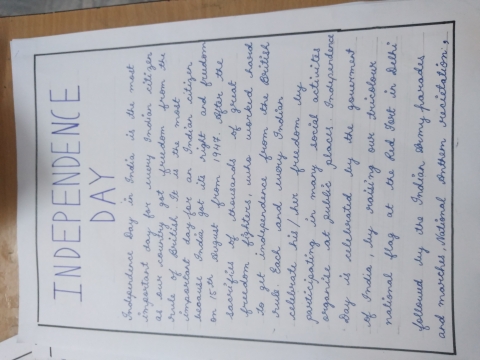 INDEPENDENCE
DAY
Independence Day in India is the most
important day for every Indian citizen
as our country got freedom from the
rule of British. It is the most
important day for an Indian citizen
because India got its right and freedom
on 15th August from 1947. After the
sacrifies of thousands of great
freedom fighters, who worked hard
to get independence from the British
rule. Each and every Indian
celebrate his/her freedom by
participating in many social activites
organise at public places. Independence
Day is celebrated by the goverment
of India, by raising our tricolour
national flag at the Red Fort in Delhi
followed by the Indian Army parades
and marches, National Anthem recitation,